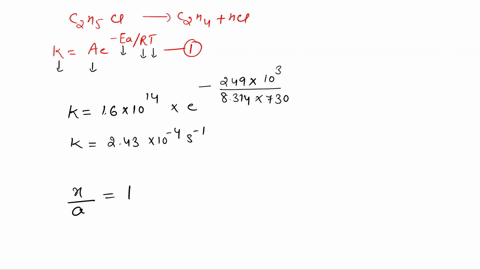 C₂H₅ Cl ⟶ C₂H₄ + HCl
K = Ae^-Ea/RT —①
K = 1.6 × 10^14 × e^-(249 × 10^3 / 8.314 × 730)
K = 2.43 × 10^-4 s^-1
x/a = 1